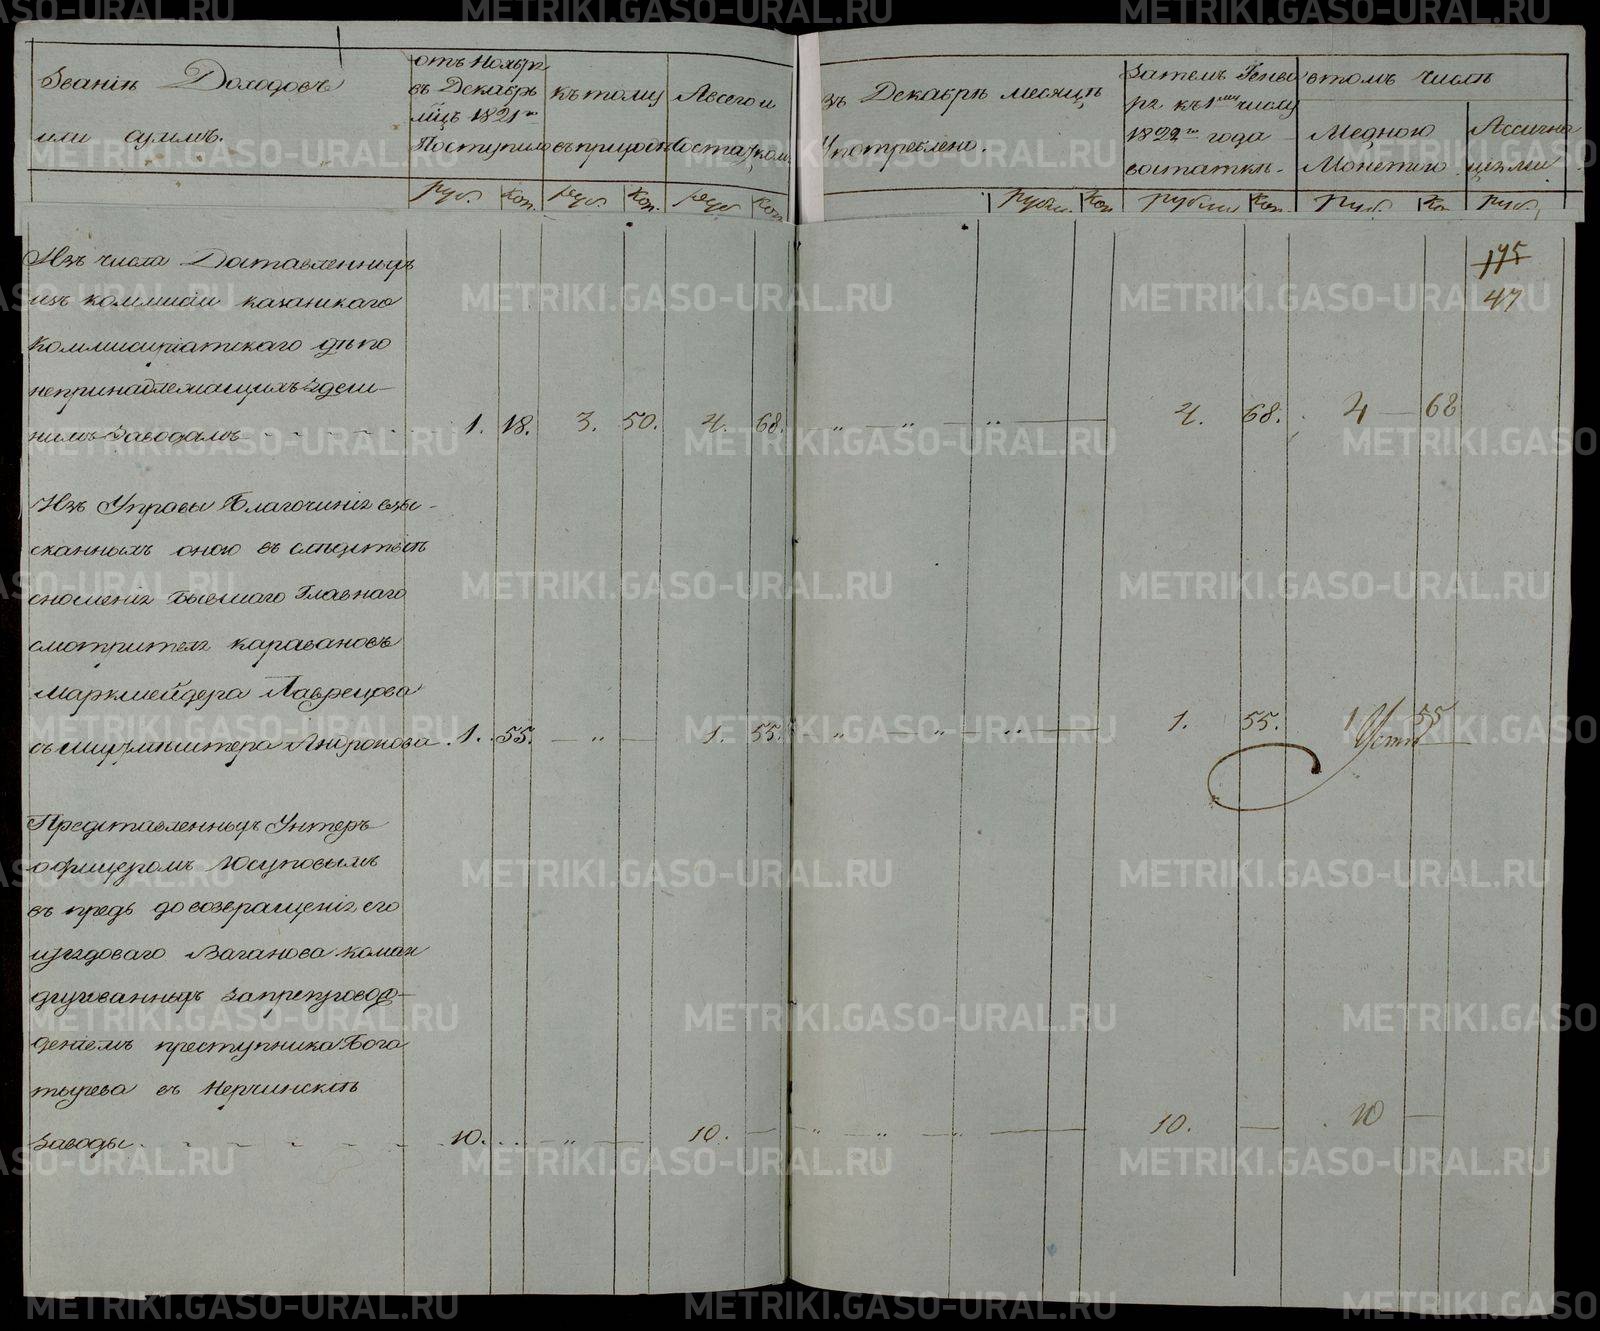 Званiѣ Доходовъ
или суммъ.
отъ Ноября
въ Декабрь
мцъ 1821го
Поступило
къ тому
въ приходъ
А всего и
состатком.
Въ Декабрѣ месяцѣ
Употреблено.
Затемъ Генва
ря къ 1му числу
1822го года
востаткѣ.
втомъ числѣ
Медною
Монетою
Ассигна
циями
руб. Коп. руб. Коп. руб. Коп. рубли. Коп рубли Коп. Руб. Коп руб.
175
47
Изъ числа Доставленныхъ
изъ коммисiи казанскаго
Коммисирiатскаго депо
непринадлежащихъ здеш-
нимъ Заводамъ 1. 18. 3. 50. 4. 68. 4. 68. 4 — 68
Изъ Управы Благочинiя взы-
сканныхъ оною въ следствiе
сношенiя Бывшаго Главнаго
смотрителя каравановъ
Маркшейдера Лаврецова
съ Шихтмейстера Андронова. 1. 55. — " — 1. 55. 1. 55. 1 55
Представленныхъ Унтеръ
офицеромъ Юсуповымъ
въ предь до возвращенiя его
урядоваго Ваганова коман
дированныхъ запрепровож-
денiемъ преступника Бога
тырева въ Нерчинскiе
Заводы. 10. — " — 10. — 10. — 10 —
METRIKI.GASO-URAL.RU